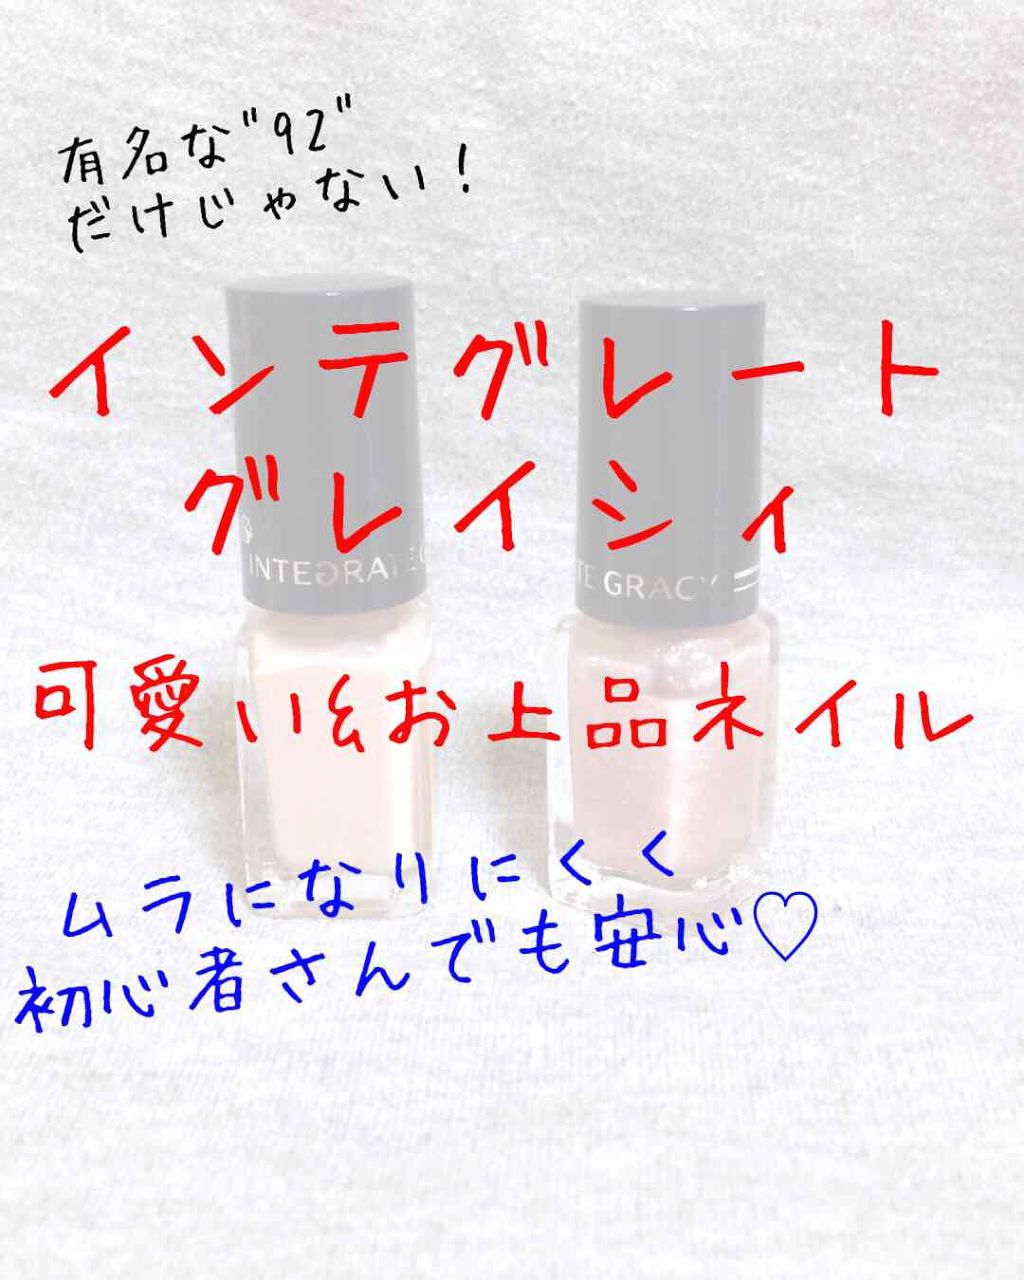 有名な"92"
だけじゃない!
インテグレート
グレイシィ
INTEGRATE G
TE GRACY
可愛い&お上品ネイル
ムラになりにくく
初心者さんでも安心♡